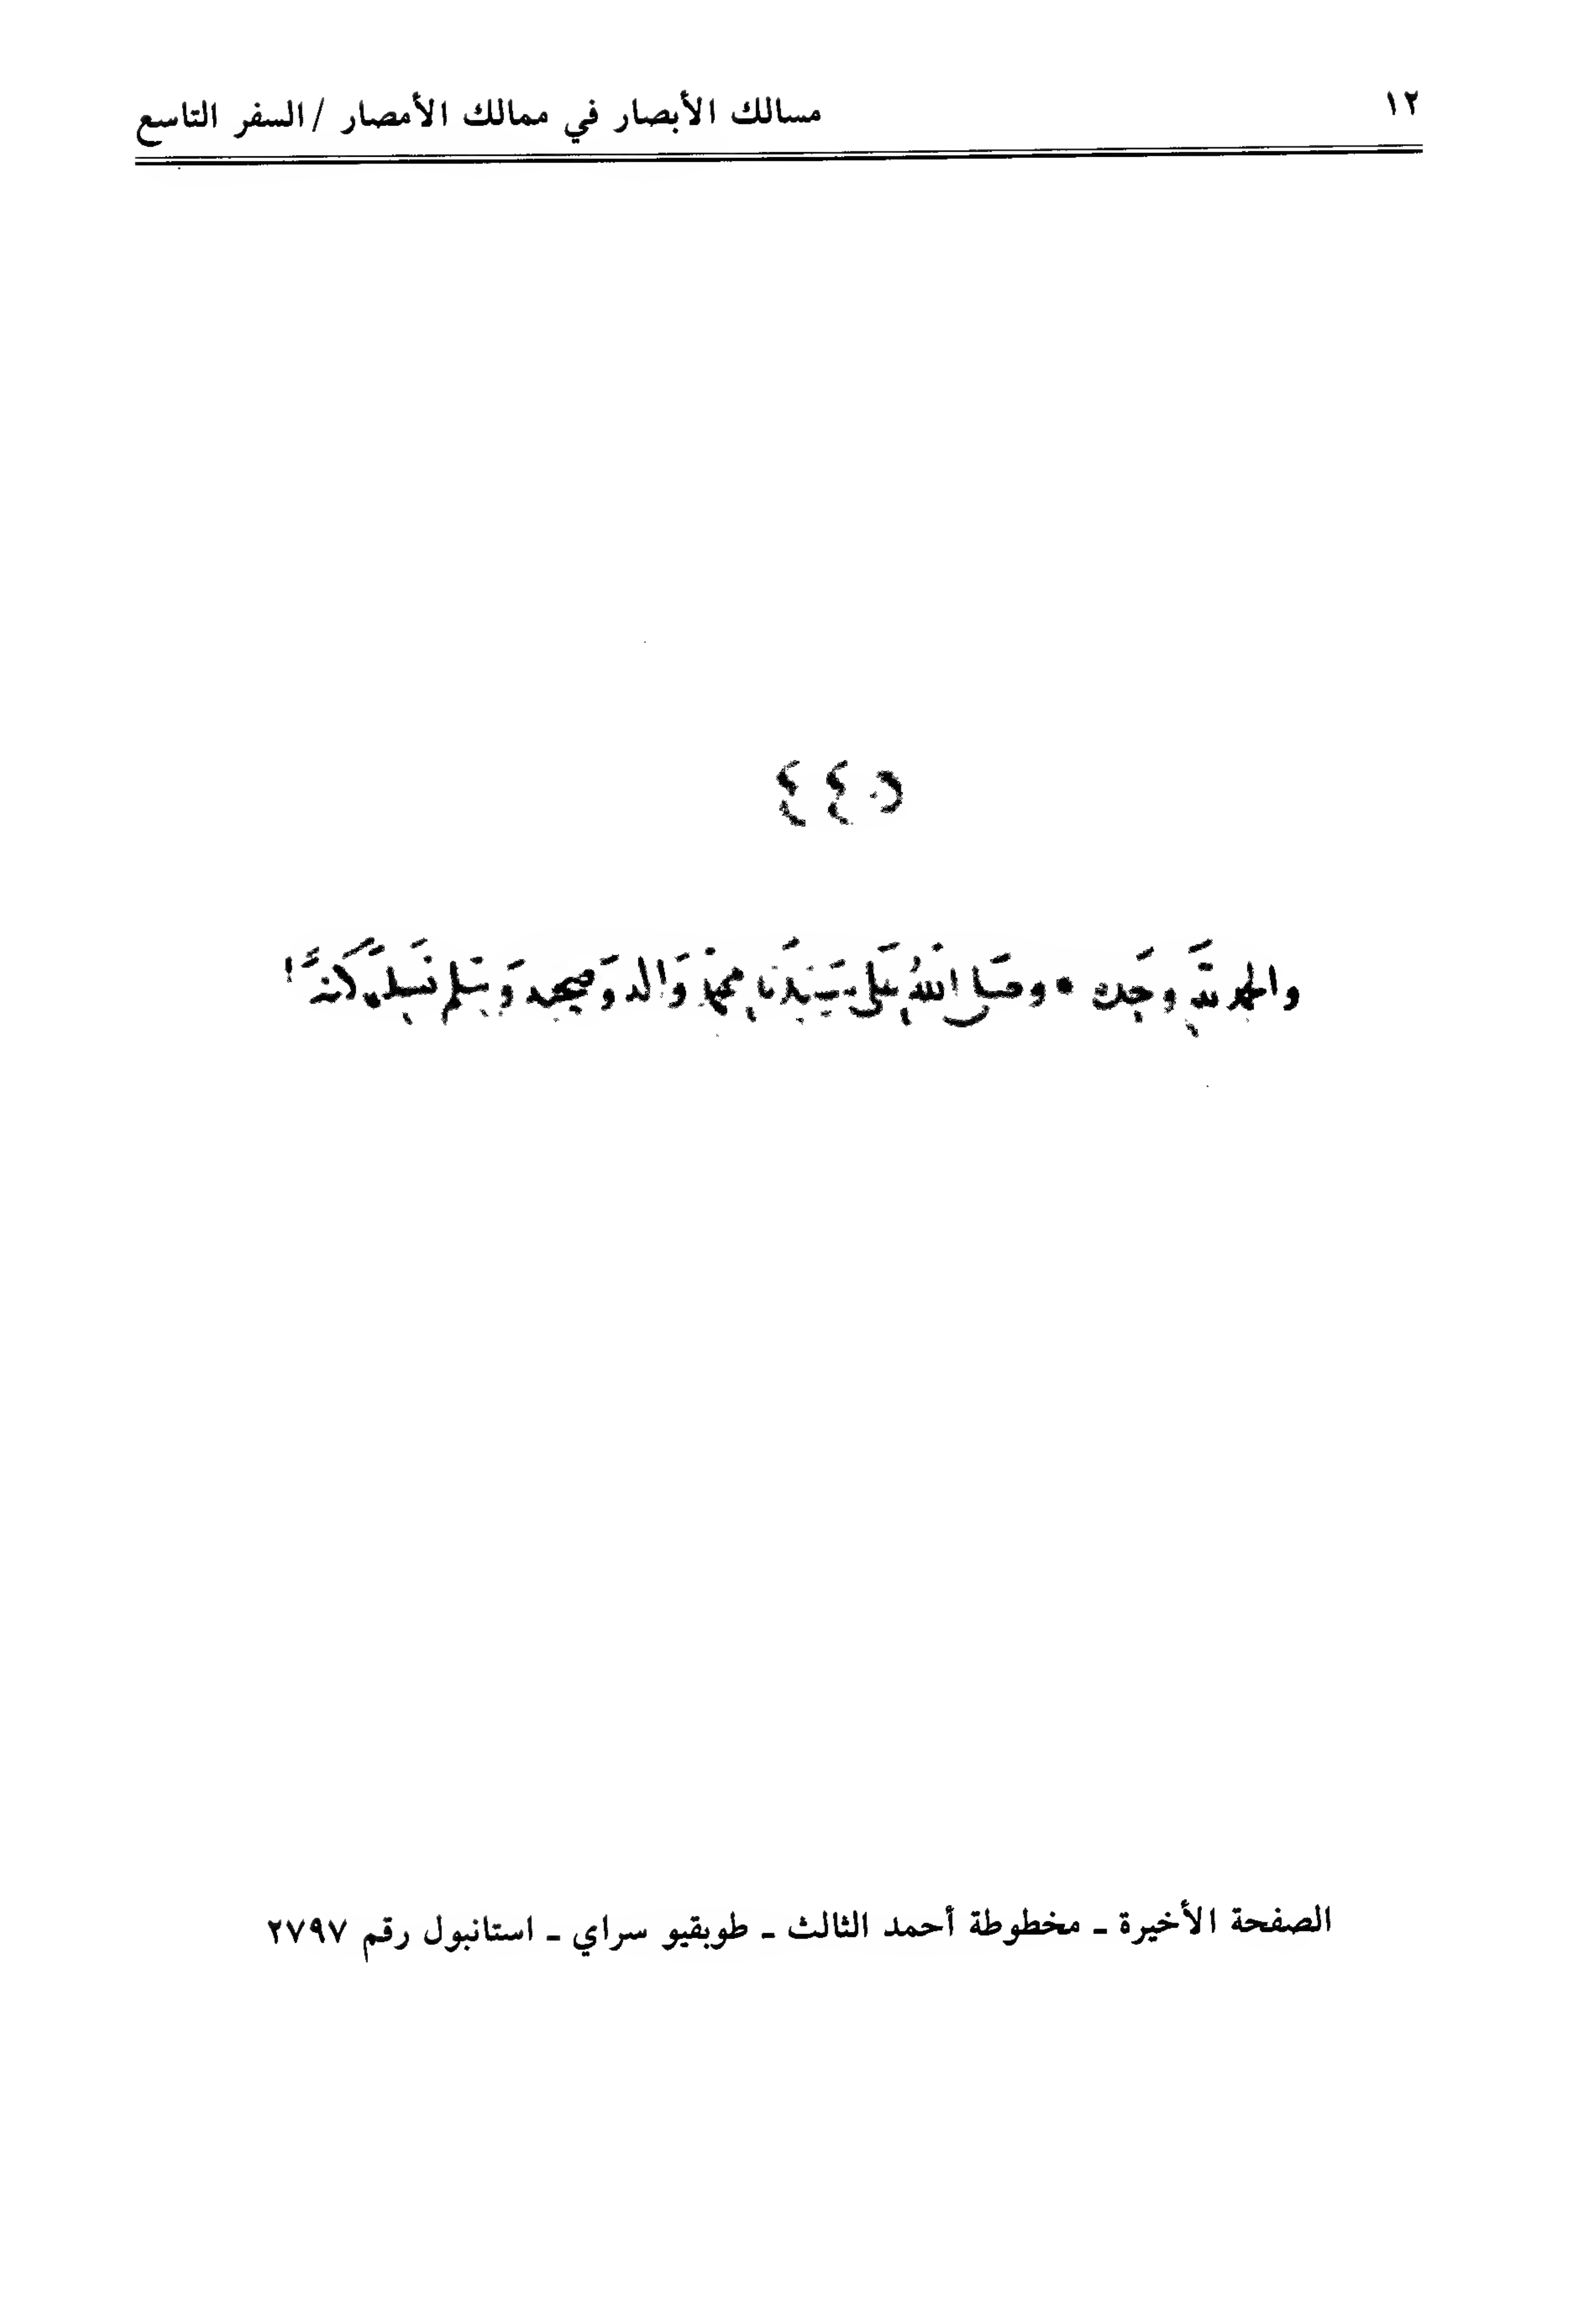 ١٢
مسالك الأبصار في ممالك الأمصار / السفر التاسع
٥٤٤
والحمد لله وحده * وصلى الله على سيدنا محمد واله وصحبه وسلم تسليما كثيرا
الصفحة الأخيرة ـ مخطوطة أحمد الثالث ـ طوبقيو سراي ـ استانبول رقم ٢٧٩٧